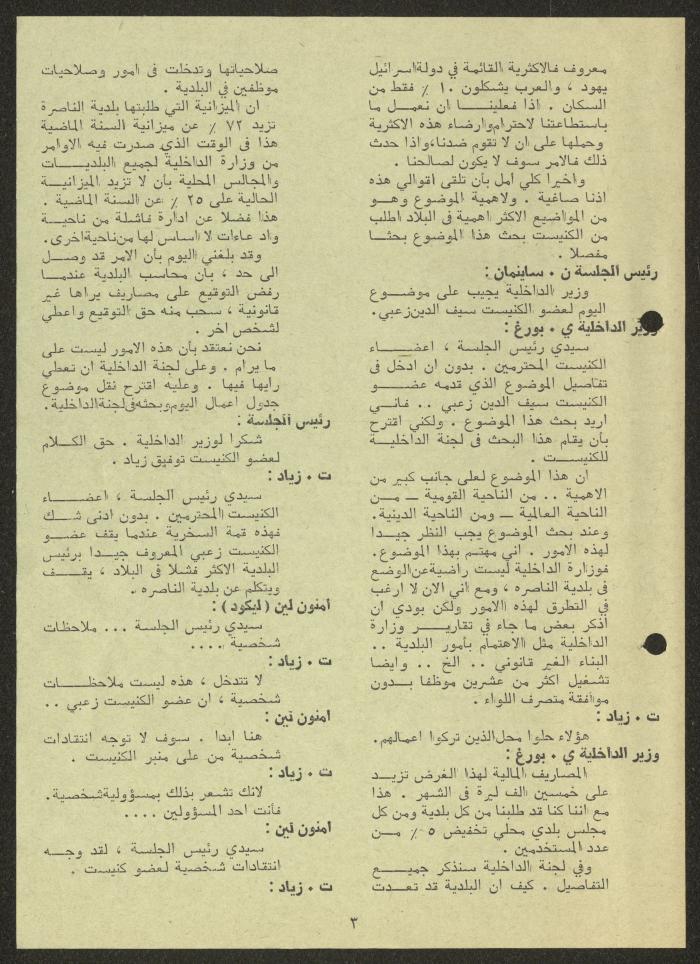 معروف فالاكثرية القائمة في دولة اسرائيل
يهود ، والعرب يشكلون ١٠ ٪ فقط من
السكان . اذا فعلينا ان نعمل ما
باستطاعتنا لاحترام وارضاء هذه الاكثرية
وحملها على ان لا تقوم ضدنا، واذا حدث
ذلك فالامر سوف لا يكون لصالحنا .
واخيرا كلي امل بأن تلقى اقوالي هذه
اذنا صاغية . ولاهمية الموضوع وهو
من المواضيع الاكثر اهمية في البلاد اطلب
من الكنيست بحث هذا الموضوع بحثا
مفصلا .
رئيس الجلسة ن . ساينمان :
وزير الداخلية يجيب على موضوع
اليوم لعضو الكنيست سيف الدين زعبي.
وزير الداخلية ي . بورغ :
سيدي رئيس الجلسة ، اعضاء
الكنيست المحترمين . بدون ان ادخل في
تفاصيل الموضوع الذي قدمه عضو
الكنيست سيف الدين زعبي .. فاني
اريد بحث هذا الموضوع . ولكني اقترح
بأن يقام هذا البحث في لجنة الداخلية
للكنيست .
ان هذا الموضوع لعلى جانب كبير من
الاهمية .. من الناحية القومية ــ من
الناحية العالمية ــ ومن الناحية الدينية.
وعند بحث الموضوع يجب النظر جيدا
لهذه الامور . اني مهتم بهذا الموضوع.
فوزارة الداخلية ليست راضية عن الوضع
في بلدية الناصره ، ومع اني الان لا ارغب
في التطرق لهذه الامور ولكن بودي ان
اذكر بعض ما جاء في تقارير وزارة
الداخلية مثل الاهتمام بأمور البلدية ..
البناء الغير قانوني .. الخ .. وايضا
تشغيل اكثر من عشرين موظفا بدون
موافقة متصرف اللواء .
ت . زياد :
هؤلاء حلوا محل الذين تركوا اعمالهم.
وزير الداخلية ي . بورغ :
المصاريف المالية لهذا الغرض تزيد
على خمسين الف ليرة في الشهر . هذا
مع اننا كنا قد طلبنا من كل بلدية ومن كل
مجلس بلدي محلي تخفيض ٥ ٪ من
عدد المستخدمين .
وفي لجنة الداخلية سنذكر جميع
التفاصيل . كيف ان البلدية قد تعدت
صلاحياتها وتدخلت في امور وصلاحيات
موظفين في البلدية .
ان الميزانية التي طلبتها بلدية الناصرة
تزيد ٧٢ ٪ عن ميزانية السنة الماضية
هذا في الوقت الذي صدرت فيه الاوامر
من وزارة الداخلية لجميع البلديات
والمجالس المحلية بأن لا تزيد الميزانية
الحالية على ٢٥ ٪ عن السنة الماضية .
هذا فضلا عن ادارة فاشلة من ناحية
واد عاءات لا اساس لها من ناحية اخرى.
وقد بلغني اليوم بأن الامر قد وصل
الى حد ، بأن محاسب البلدية عندما
رفض التوقيع على مصاريف يراها غير
قانونية ، سحب منه حق التوقيع واعطي
لشخص اخر .
نحن نعتقد بأن هذه الامور ليست على
ما يرام . وعلى لجنة الداخلية ان تعطي
رأيها فيها . وعليه اقترح نقل موضوع
جدول اعمال اليوم وبحثه في لجنة الداخلية.
رئيس الجلسة :
شكرا لوزير الداخلية . حق الكلام
لعضو الكنيست توفيق زياد .
ت . زياد :
سيدي رئيس الجلسة ، اعضاء
الكنيست المحترمين . بدون ادنى شك
فهذه قمة السخرية عندما يقف عضو
الكنيست زعبي المعروف جيدا برئيس
البلدية الاكثر فشلا في البلاد ، يقف
ويتكلم عن بلدية الناصره .
أمنون لين ( ليكود ) :
سيدي رئيس الجلسة ... ملاحظات
شخصية ....
ت . زياد :
لا تتدخل ، هذه ليست ملاحظات
شخصية ، ان عضو الكنيست زعبي ..
امنون لين :
هنا ابدا . سوف لا توجه انتقادات
شخصية من على منبر الكنيست .
ت . زياد :
لانك تشعر بذلك بمسؤولية شخصية.
فأنت احد المسؤولين ....
أمنون لين :
سيدي رئيس الجلسة ، لقد وجه
انتقادات شخصية لعضو كنيست .
ت . زياد :
٣